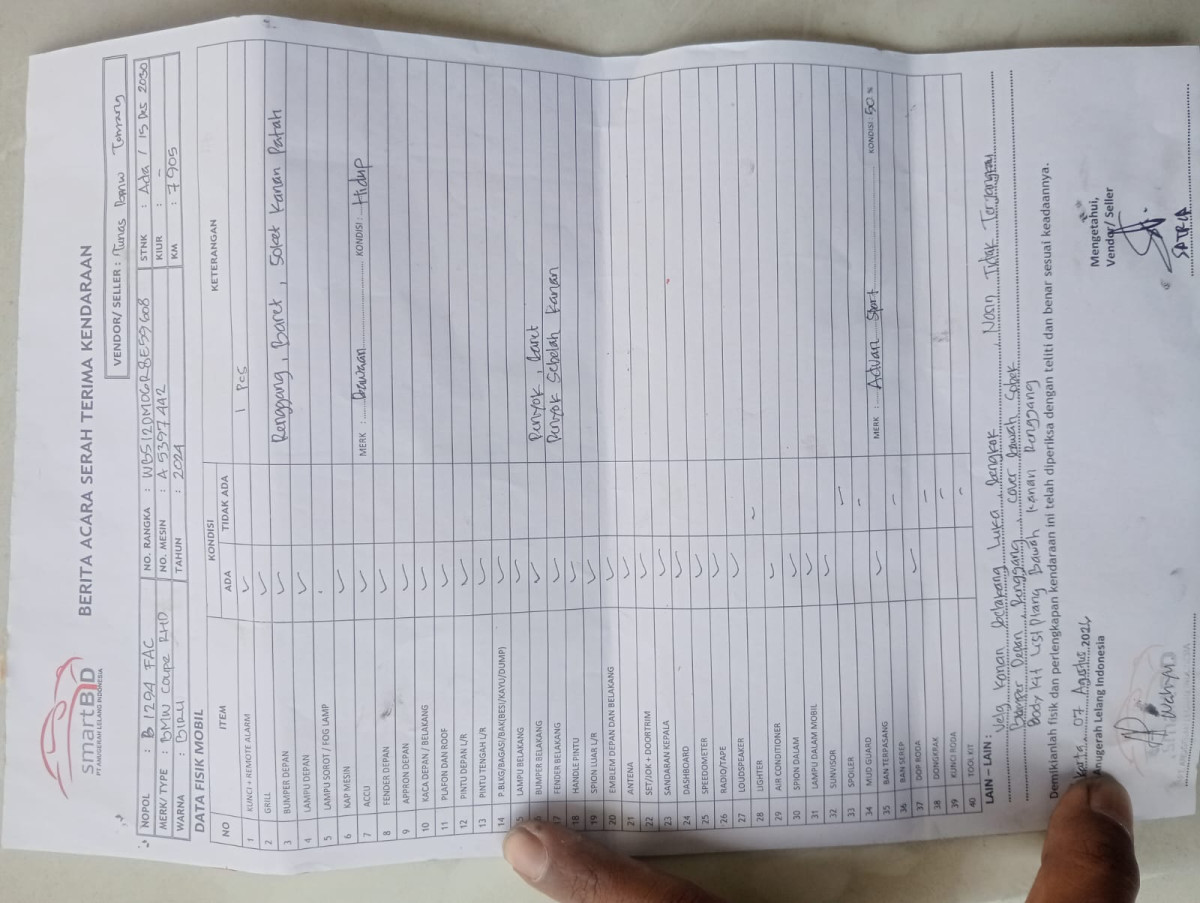 smartBID
PT ANUGERAH LELANG INDONESIA
BERITA ACARA SERAH TERIMA KENDARAAN
VENDOR/ SELLER : Tunas BMW Tomang
NOPOL : B 1294 FAC NO. RANGKA : STNK : Ada / 15 Des 2030
MERK/ TYPE : BMW Coupe RHD NO. MESIN : KIUR : -
WARNA : BIRU TAHUN : 2024 KM : 7905
DATA FISIK MOBIL
NO ITEM KONDISI KETERANGAN
ADA TIDAK ADA
1 KUNCI + REMOTE ALARM ✓ 1 Pcs
2 GRILL ✓
3 BUMPER DEPAN ✓ Renggang, Baret, Soket Kanan Patah
4 LAMPU DEPAN ✓
5 LAMPU SOROT / FOG LAMP
6 KAP MESIN ✓
7 ACCU ✓ MERK : Bawaan KONDISI : Hidup
8 FENDER DEPAN ✓
9 APPRON DEPAN ✓
10 KACA DEPAN / BELAKANG ✓
11 PLAFON DAN ROOF ✓
12 PINTU DEPAN L/R ✓
13 PINTU TENGAH L/R ✓
14 P.BLKG/BAGASI/BAK(BESI/KAYU/DUMP) ✓
15 LAMPU BELAKANG ✓
BUMPER BELAKANG ✓ Penyok, baret
17 FENDER BELAKANG ✓ Penyok Sebelah Kanan
18 HANDLE PINTU ✓
19 SPION LUAR L/R ✓
20 EMBLEM DEPAN DAN BELAKANG ✓
21 ANTENA ✓
22 SET/JOK + DOORTRIM ✓
23 SANDARAN KEPALA ✓
24 DASHBOARD ✓
25 SPEEDOMETER ✓
26 RADIO/TAPE ✓
27 LOUDSPEAKER ✓
28 LIGHTER ✓
29 AIR CONDITIONER ✓
30 SPION DALAM ✓
31 LAMPU DALAM MOBIL ✓
32 SUNVISOR ✓
33 SPOILER ✓
34 MUD GUARD -
35 BAN TERPASANG ✓ MERK : Advan Sport KONDISI : 50 %
36 BAN SEREP -
37 DOP RODA ✓
38 DONGKRAK -
39 KUNCI RODA -
40 TOOL KIT -
LAIN – LAIN : Velg Kanan belakang Luka, bengkok Nosin Tidak Terjangkau
Bamper Depan Renggang cover bawah Sobek
Body Kit List Plang Bawah Kanan Renggang
Demikianlah fisik dan perlengkapan kendaraan ini telah diperiksa dengan teliti dan benar sesuai keadaannya.
07 Agustus 2024
Anugerah Lelang Indonesia
Mengetahui,
Vendor/ Seller
Wahyu
SATRIA